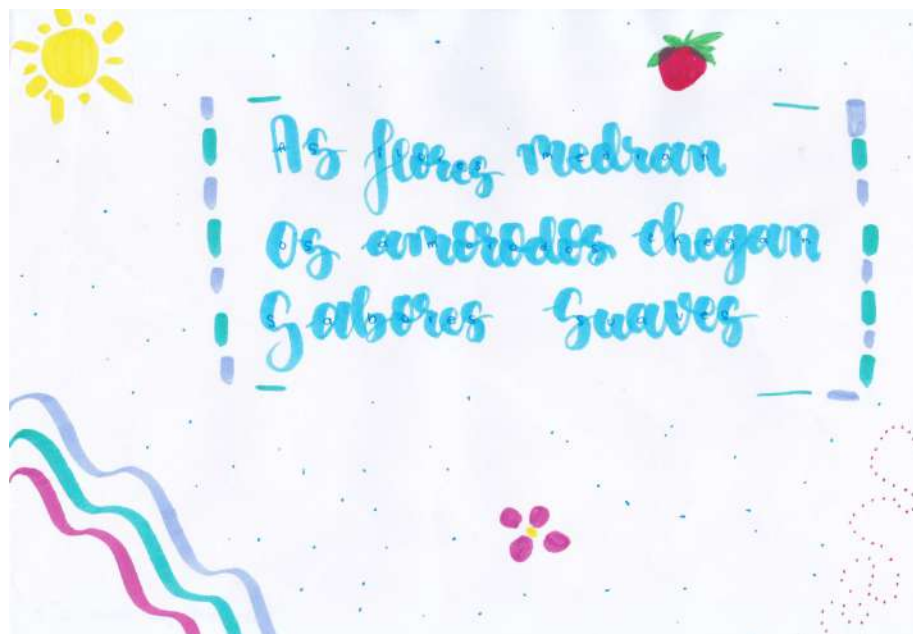 As flores medran
os amorodos chegan
Sabores Suaves